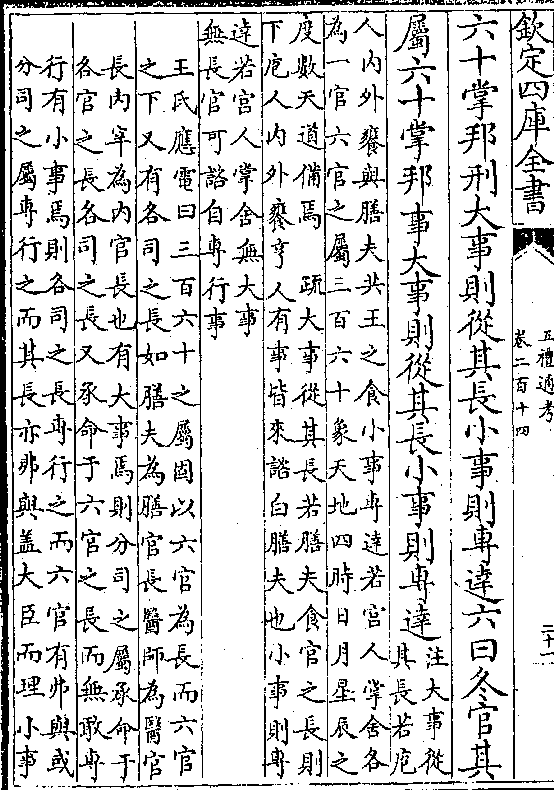 欽定四庫全書
五禮通考
卷二百十四
二十一
六十掌邦刑大事則從其長小事則專達六曰冬官其
屬六十掌邦事大事則從其長小事則專達
注大事從
其長若庖
人內外饔與膳夫共王之食小事專達若宮人掌舍各
為一官六官之屬三百六十象天地四時日月星辰之
度數天道備焉　疏大事從其長若膳夫食官之長則
下庖人內外饔亨人有事皆來諮白膳夫也小事則專
達若宮人掌舍無大事
無長官可諮自專行事
王氏應電曰三百六十之屬固以六官為長而六官
之下又有各司之長如膳夫為膳官長醫師為醫官
長內宰為內官長也有大事焉則分司之屬承命于
各官之長各司之長又承命于六官之長而無敢專
行有小事焉則各司之長專行之而六官有弗與或
分司之屬專行之而其長亦弗與盖大臣而理小事